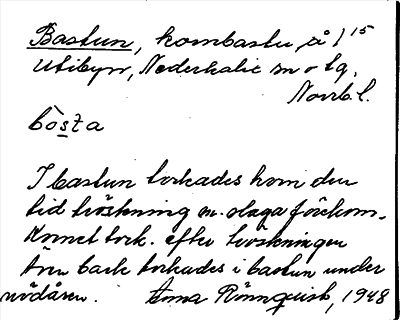 Bastun, kornbastu på 1/15
Utibyn, Nederkalix sn o tg,
Norrb. l.
bòsta
I bastun torkades korn den
tid tröskning m. slaga förekom.
Kornet tork. efter tröskningen
Även bark torkades i bastun under
nödåren. Anna Rönnquist, 1948